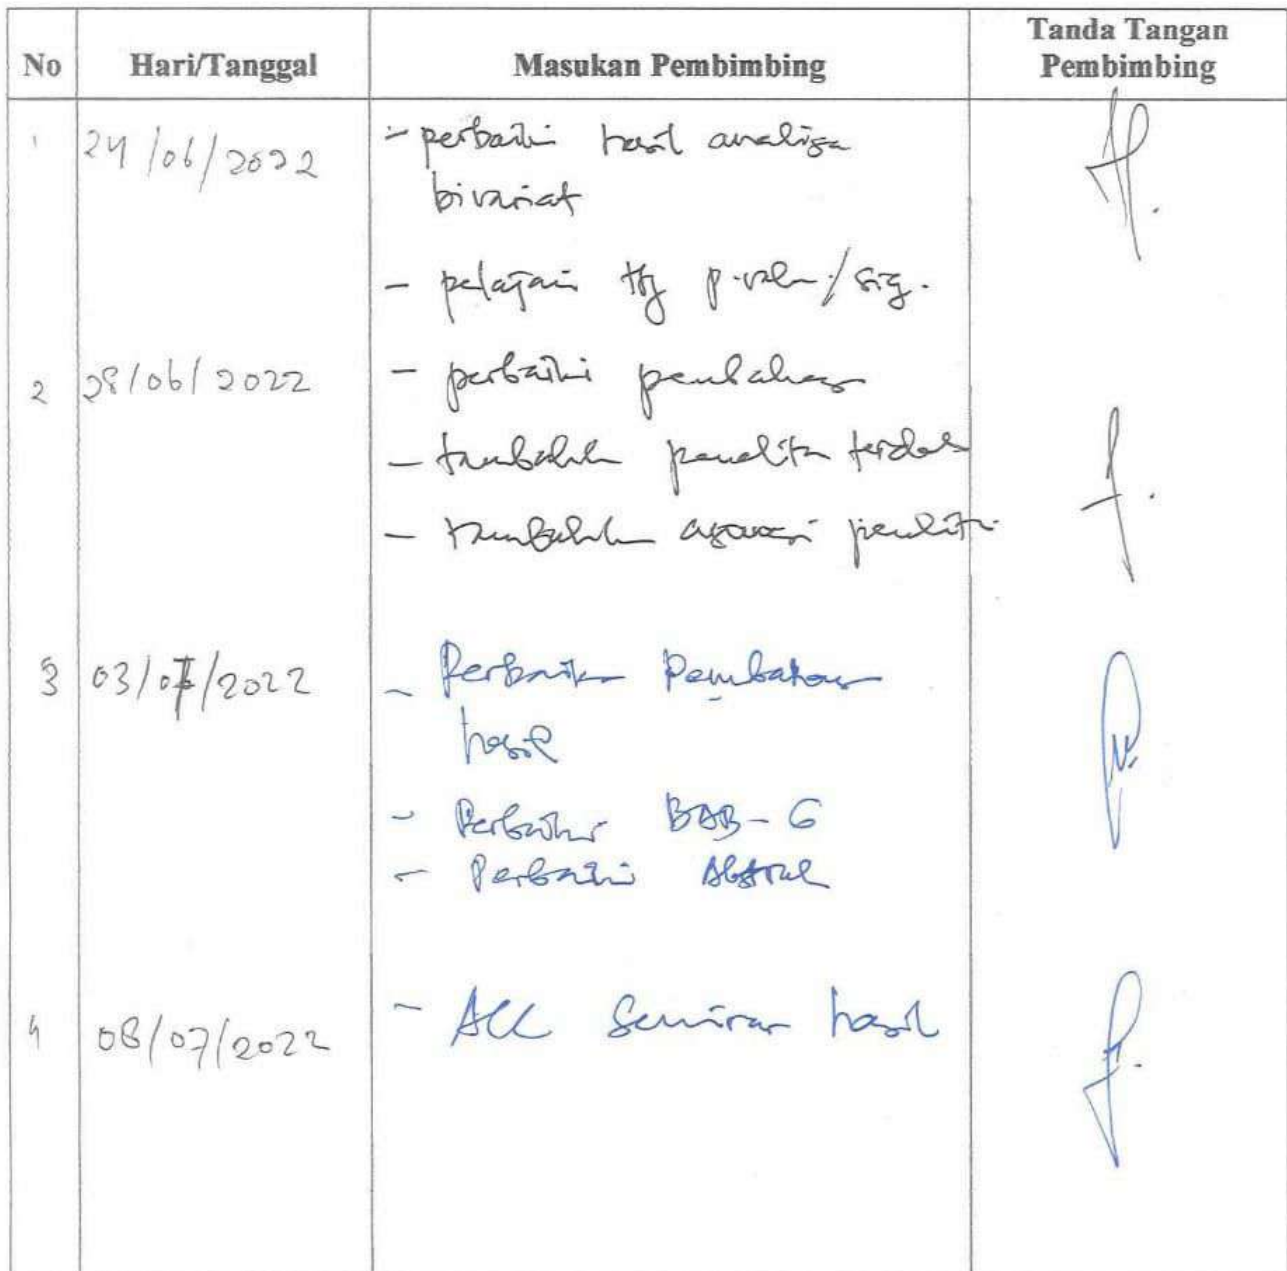 No Hari/Tanggal Masukan Pembimbing Tanda Tangan Pembimbing
1 24/06/2022 - perbaiki hasil analisa
bivariat
- pelajari ttg p.value/sig.
2 28/06/2022 - perbaiki pembahasan
- tambahkan penelitian
- tambahkan asumsi peneliti
3 03/07/2022 - Perbaikan Pembahasan
hasil
- Perbaiki BAB-6
- Perbaiki Abstrak
4 08/07/2022 - ACC Seminar hasil